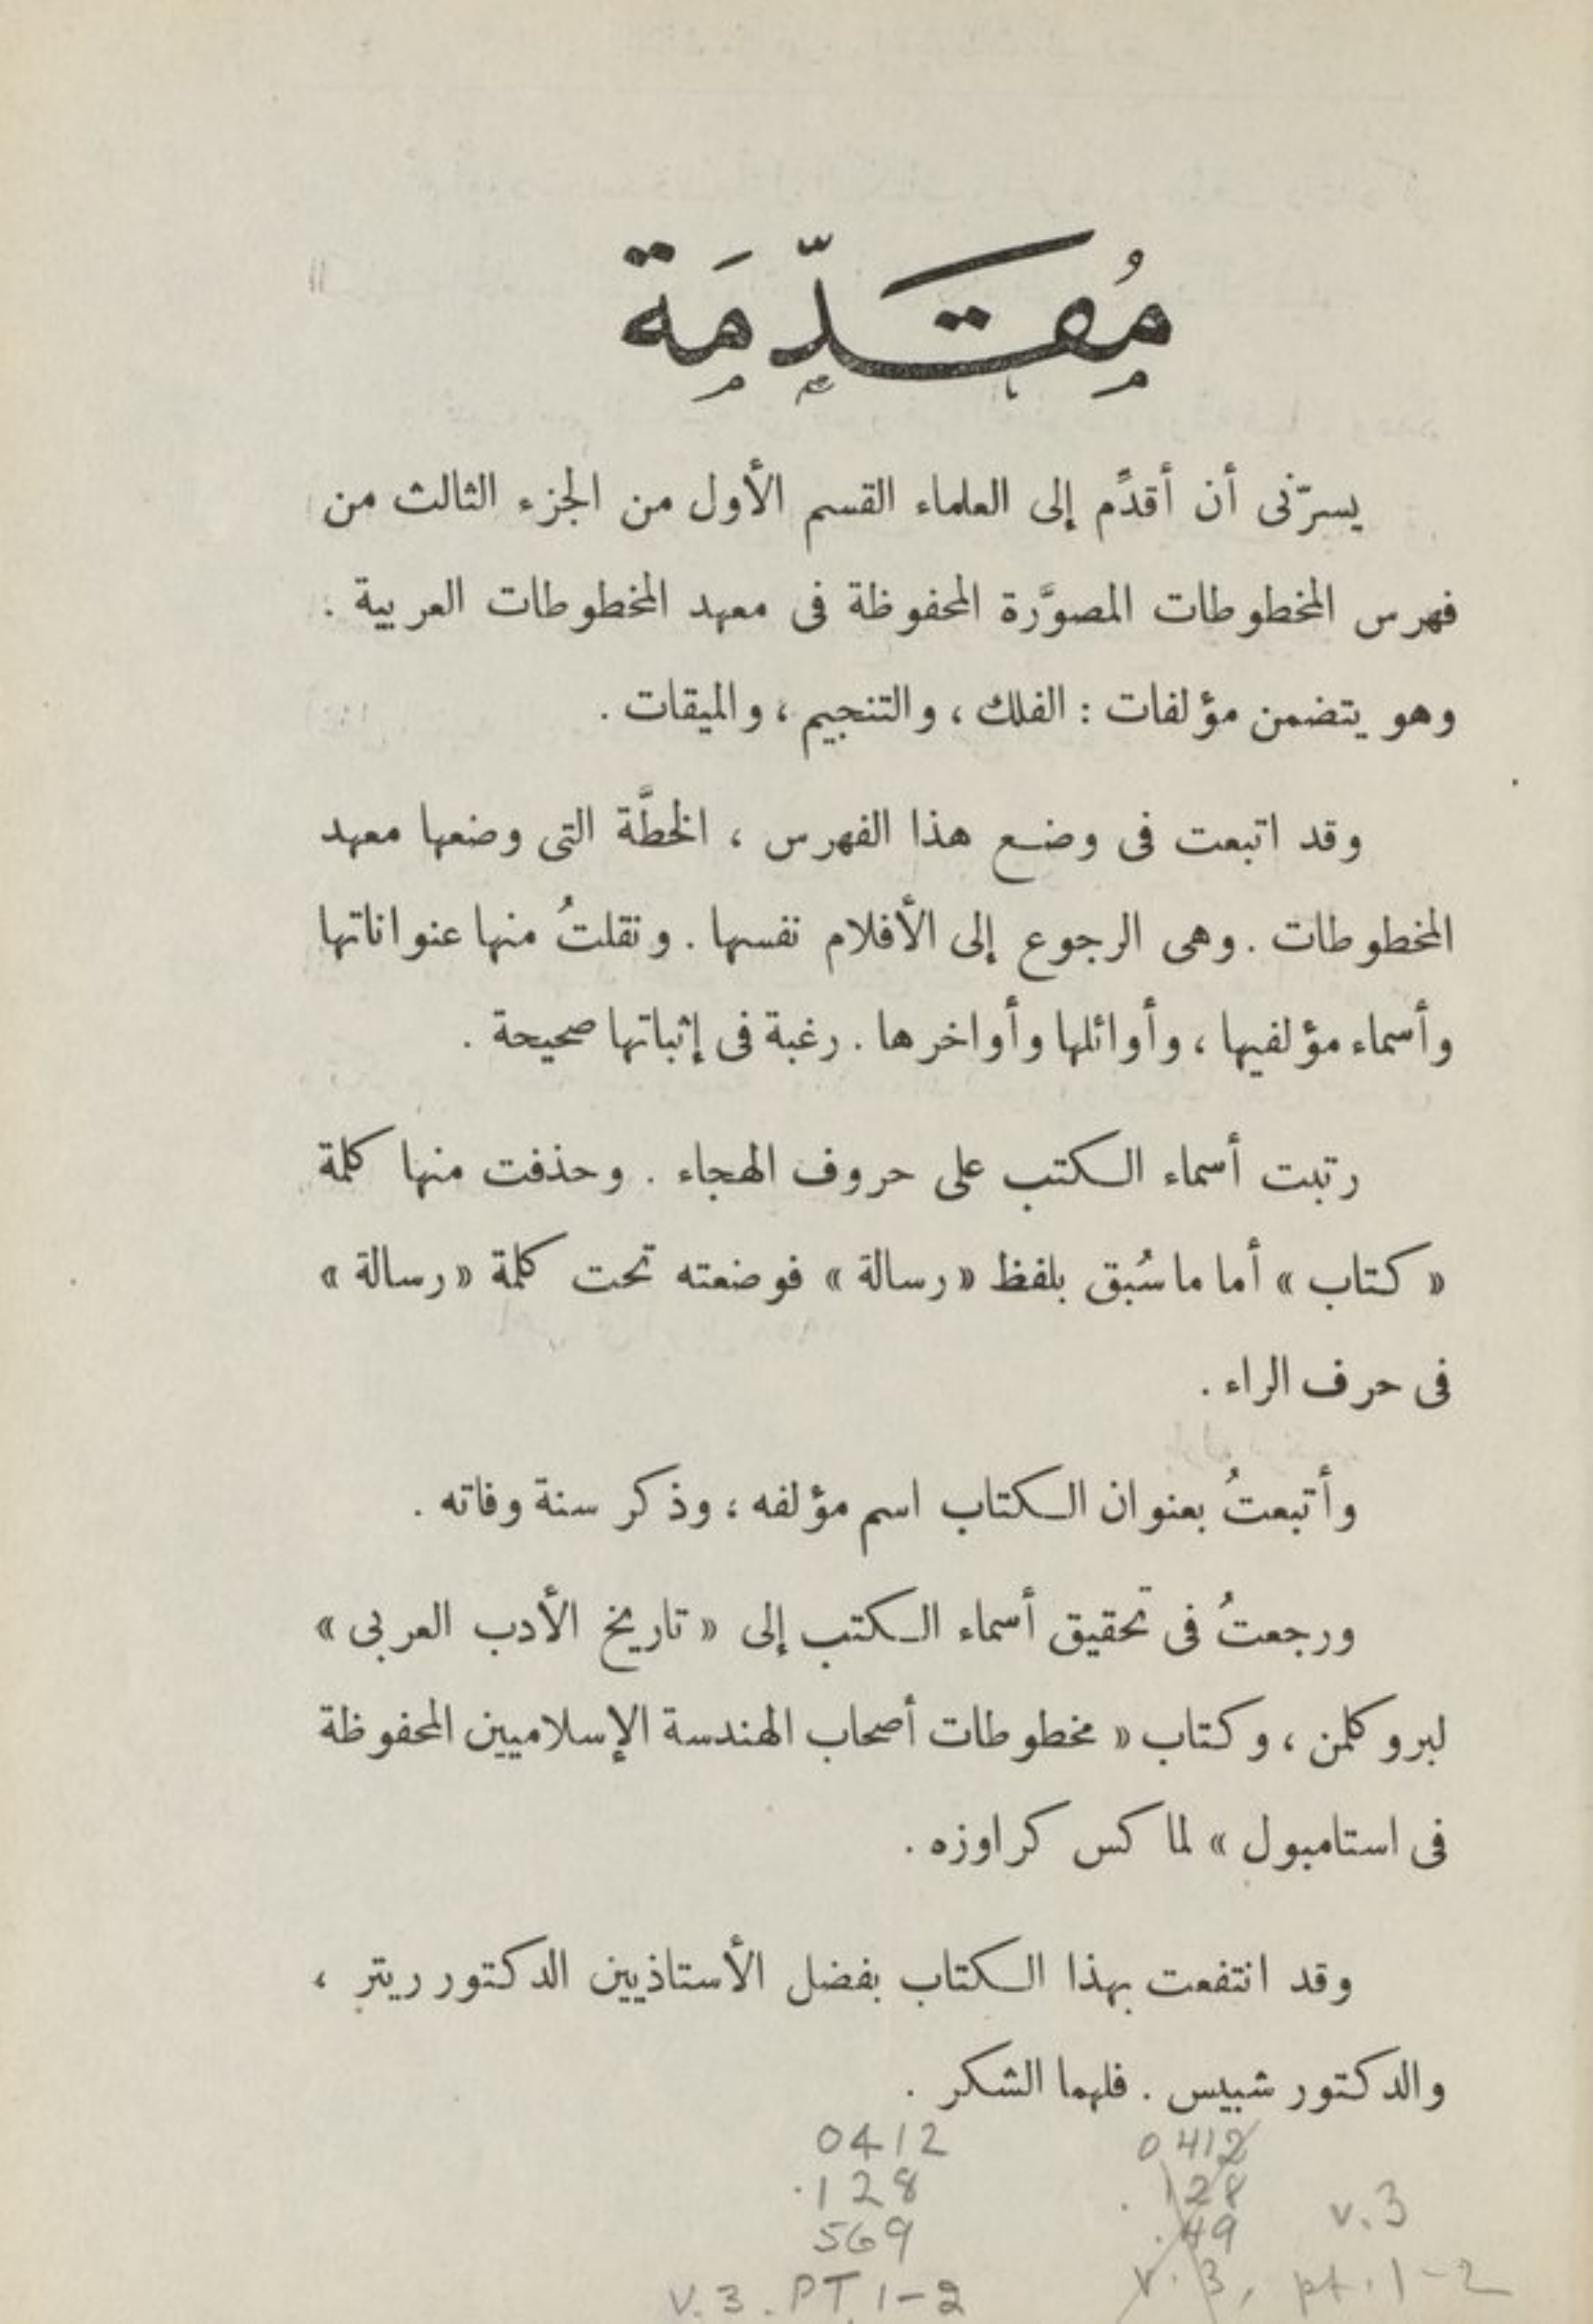 مُقَدِّمَة
يسرّنى أن أقدِّم إلى العلماء القسم الأول من الجزء الثالث من
فهرس المخطوطات المصوَّرة المحفوظة فى معهد المخطوطات العربية .
وهو يتضمن مؤلفات : الفلك ، والتنجيم ، والميقات .
وقد اتبعت فى وضع هذا الفهرس ، الخطَّة التى وضعها معهد
المخطوطات . وهى الرجوع إلى الأفلام نفسها . ونقلتُ منها عنواناتها
وأسماء مؤلفيها ، وأوائلها وأواخرها . رغبة فى إثباتها صحيحة .
رتبت أسماء الكتب على حروف الهجاء . وحذفت منها كلمة
« كتاب » أما ما سُبق بلفظ « رسالة » فوضعته تحت كلمة « رسالة »
فى حرف الراء .
وأتبعتُ بعنوان الكتاب اسم مؤلفه ، وذكر سنة وفاته .
ورجعتُ فى تحقيق أسماء الكتب إلى « تاريخ الأدب العربى »
لبروكلمن ، وكتاب « مخطوطات أصحاب الهندسة الإسلاميين المحفوظة
فى استامبول » لماكس كراوزه .
وقد انتفعت بهذا الكتاب بفضل الأستاذيين الدكتور ريتر ،
والدكتور شبيس . فلهما الشكر .
0412 0412
.128 .128
569 .49 v.3
V.3. PT. 1-2 v.3, pt.1-2